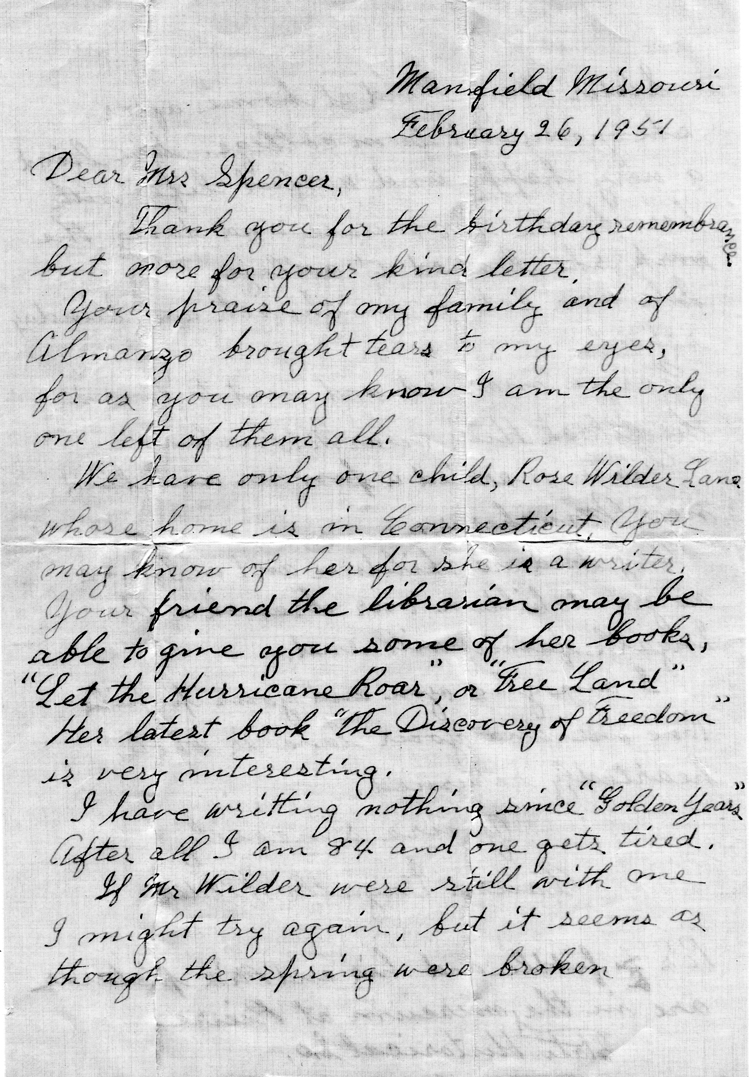 Mansfield Missouri
February 26, 1951
Dear Mrs Spencer,
Thank you for the birthday remembrance
but more for your kind letter.
Your praise of my family and of
Almanzo brought tears to my eyes,
for as you may know I am the only
one left of them all.
We have only one child, Rose Wilder Lane
whose home is in Connecticut. You
may know of her for she is a writer.
Your friend the librarian may be
able to give you some of her books,
"Let the Hurricane Roar", or "Free Land"
Her latest book "The Discovery of Freedom"
is very interesting.
I have writting nothing since "Golden Years"
After all I am 84 and one gets tired.
If Mr Wilder were still with me
I might try again, but it seems as
though the spring were broken